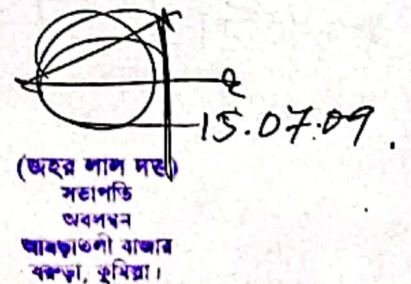 15.07.09
(জহর লাল দত্ত)
সভাপতি
অবলম্বন
বাজার
বরুড়া, কুমিল্লা।